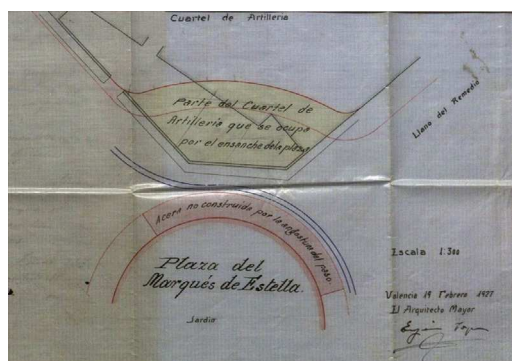 Cuartel de Artillería
Parte del Cuartel de
Artillería que se ocupa
por el ensanche de la plaza
Llano del Remedio
Acera no construida por la angostura del paso
Plaza del
Marqués de Estella.
Jardin
Escala 1:300
Valencia 19 Febrero 1927
El Arquitecto Mayor